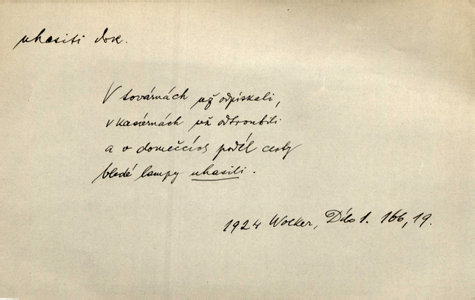 uhasiti dok.
V továrnách už odpískali,
v kasárnách už odtroubili
a v domečcích podél cesty
bledé lampy uhasili.
1924 Wolker, Dílo 1. 166, 19.